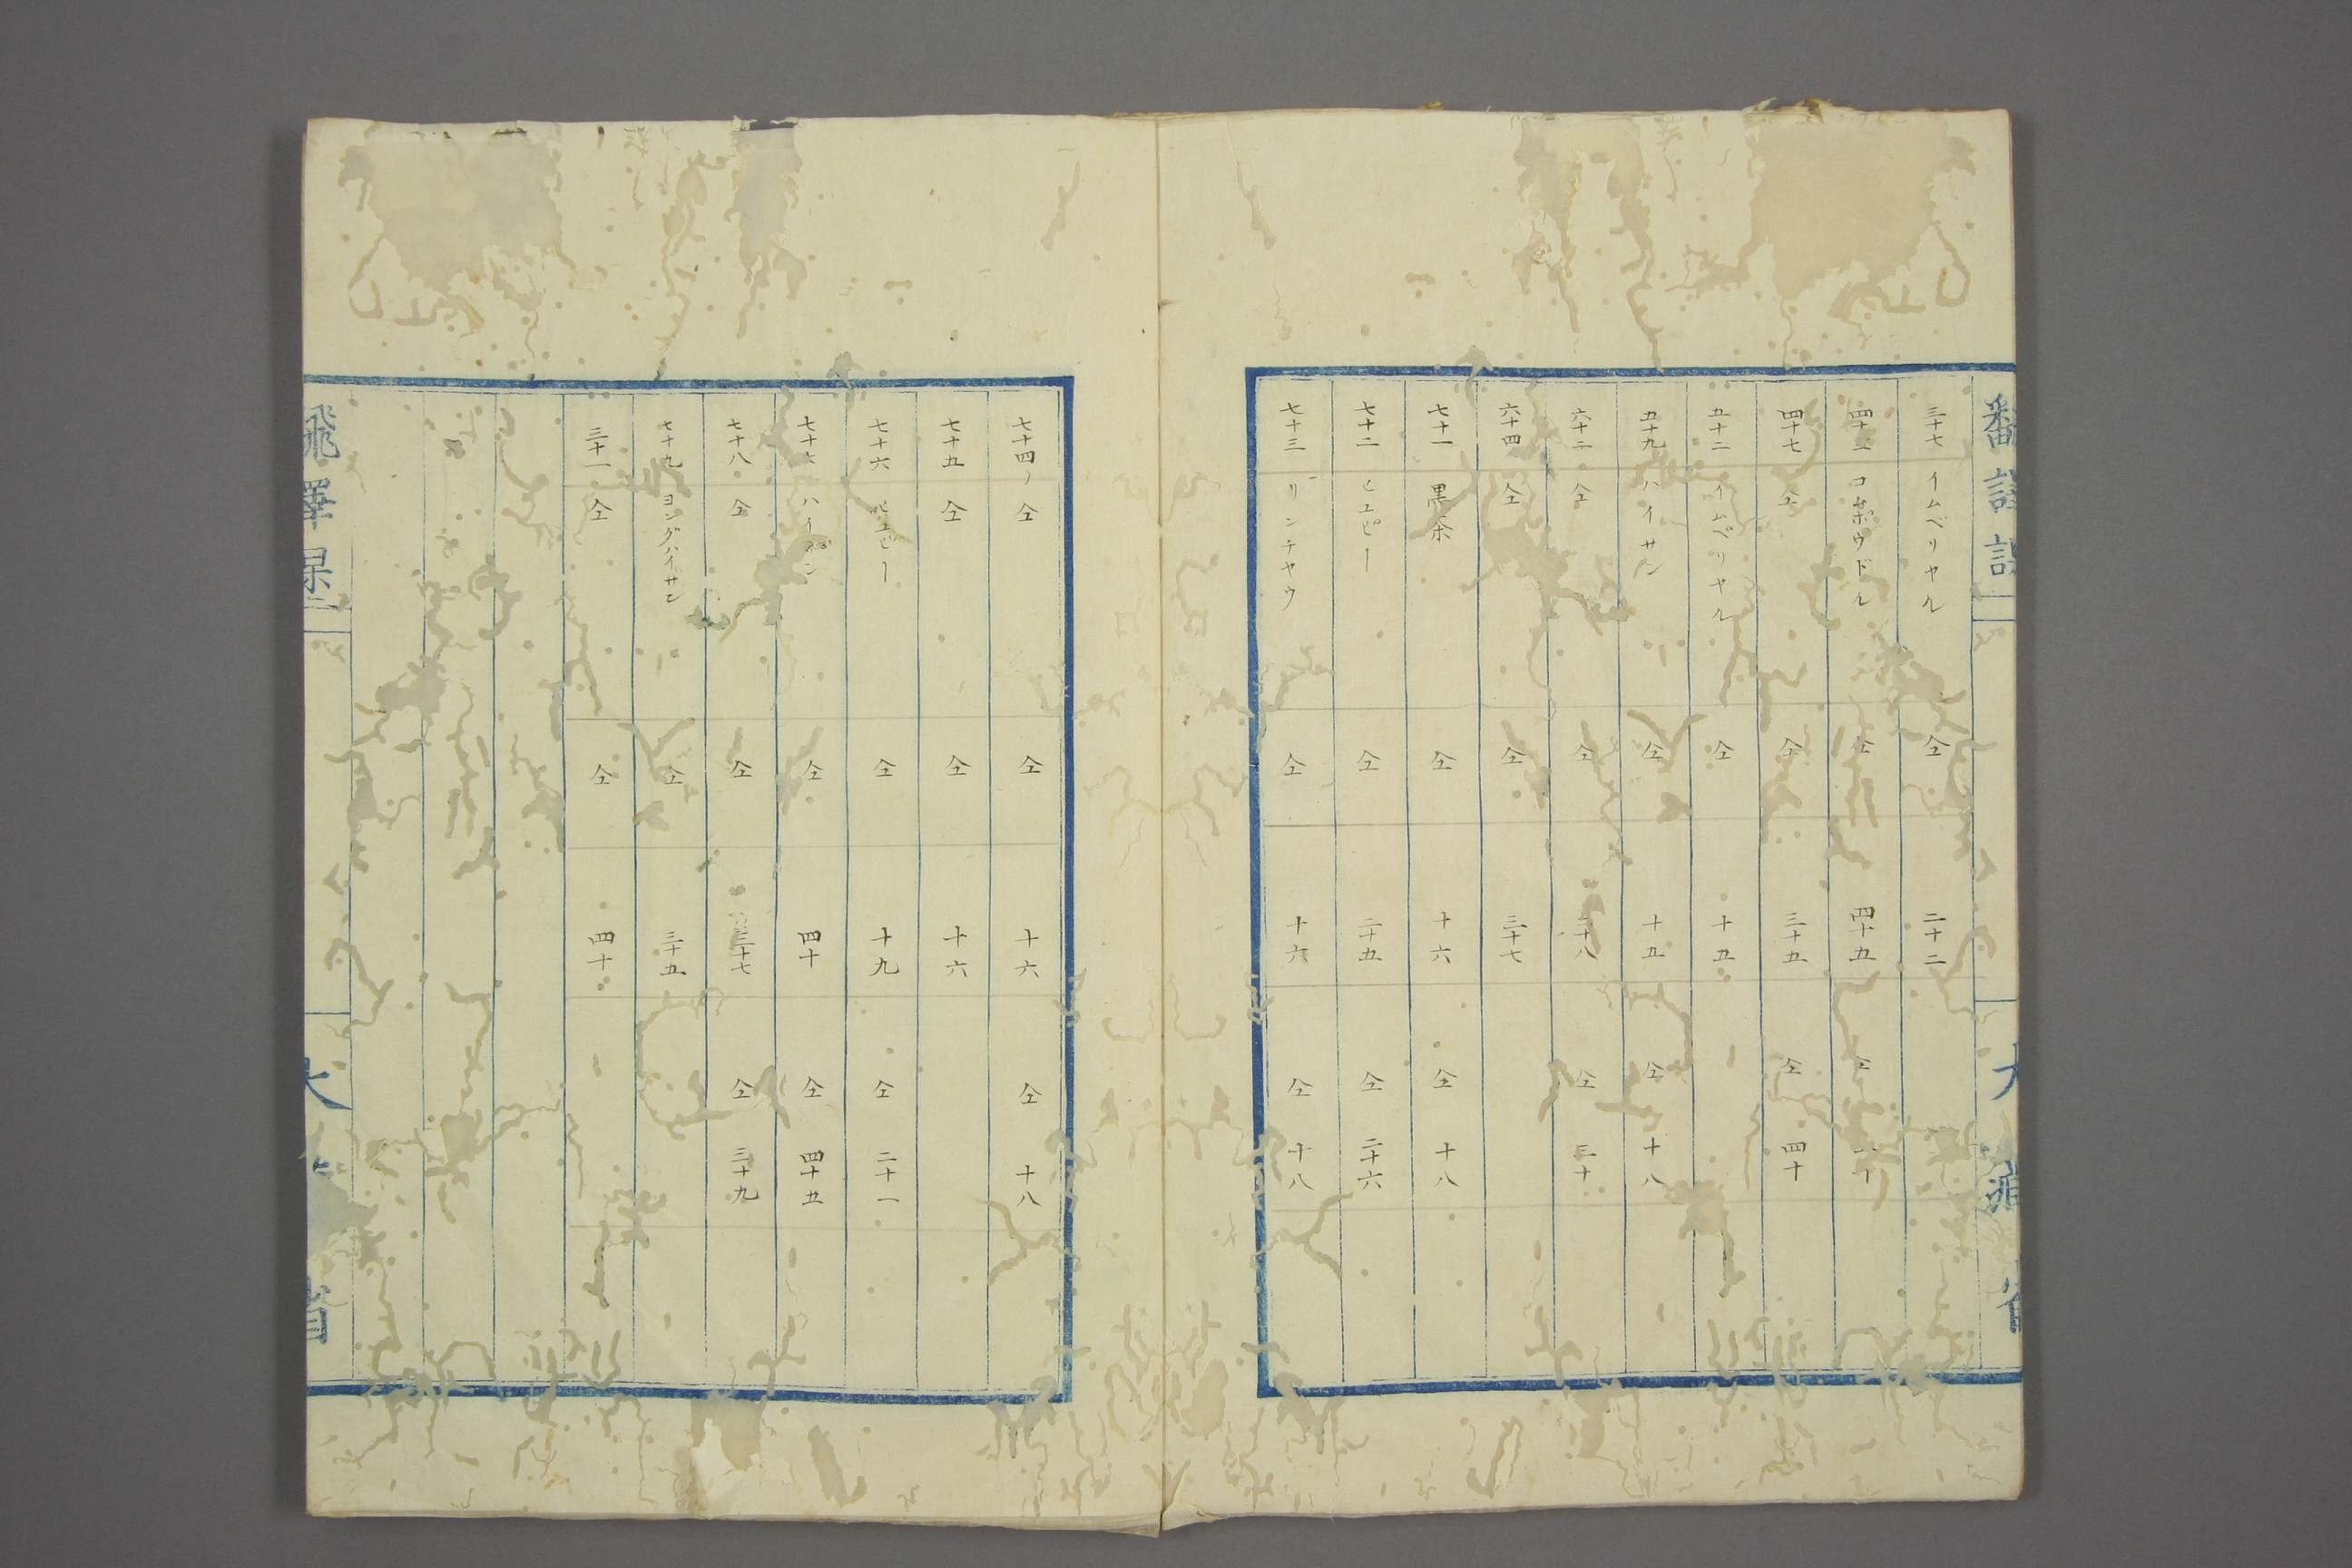 三十七 イムベリヤル 仝 二十二
コムポウドル 仝 四十五 仝
四十七 仝 仝 三十五 仝 四十
五十二 イムペリヤル 仝 十五
五十九 ハイサン 仝 十五 仝 十八
六十二 仝 仝 二十八 仝 三十
六十四 仝 仝 三十七
七十一 黒茶 仝 十六 仝 十八
七十二 ヒエピー 仝 二十五 仝 二十六
七十三 リンチヤウ 仝 十六 仝 十八
七十四ノ 仝 仝 十六 仝 十八
七十五 仝 仝 十六
七十六 ヒエピー 仝 十九 仝 二十一
ハイサン 仝 四十 仝 四十五
七十八 仝 仝 三十七 仝 三十九
七十九 ヨングハイサン 仝 三十五
三十一 仝 仝 四十